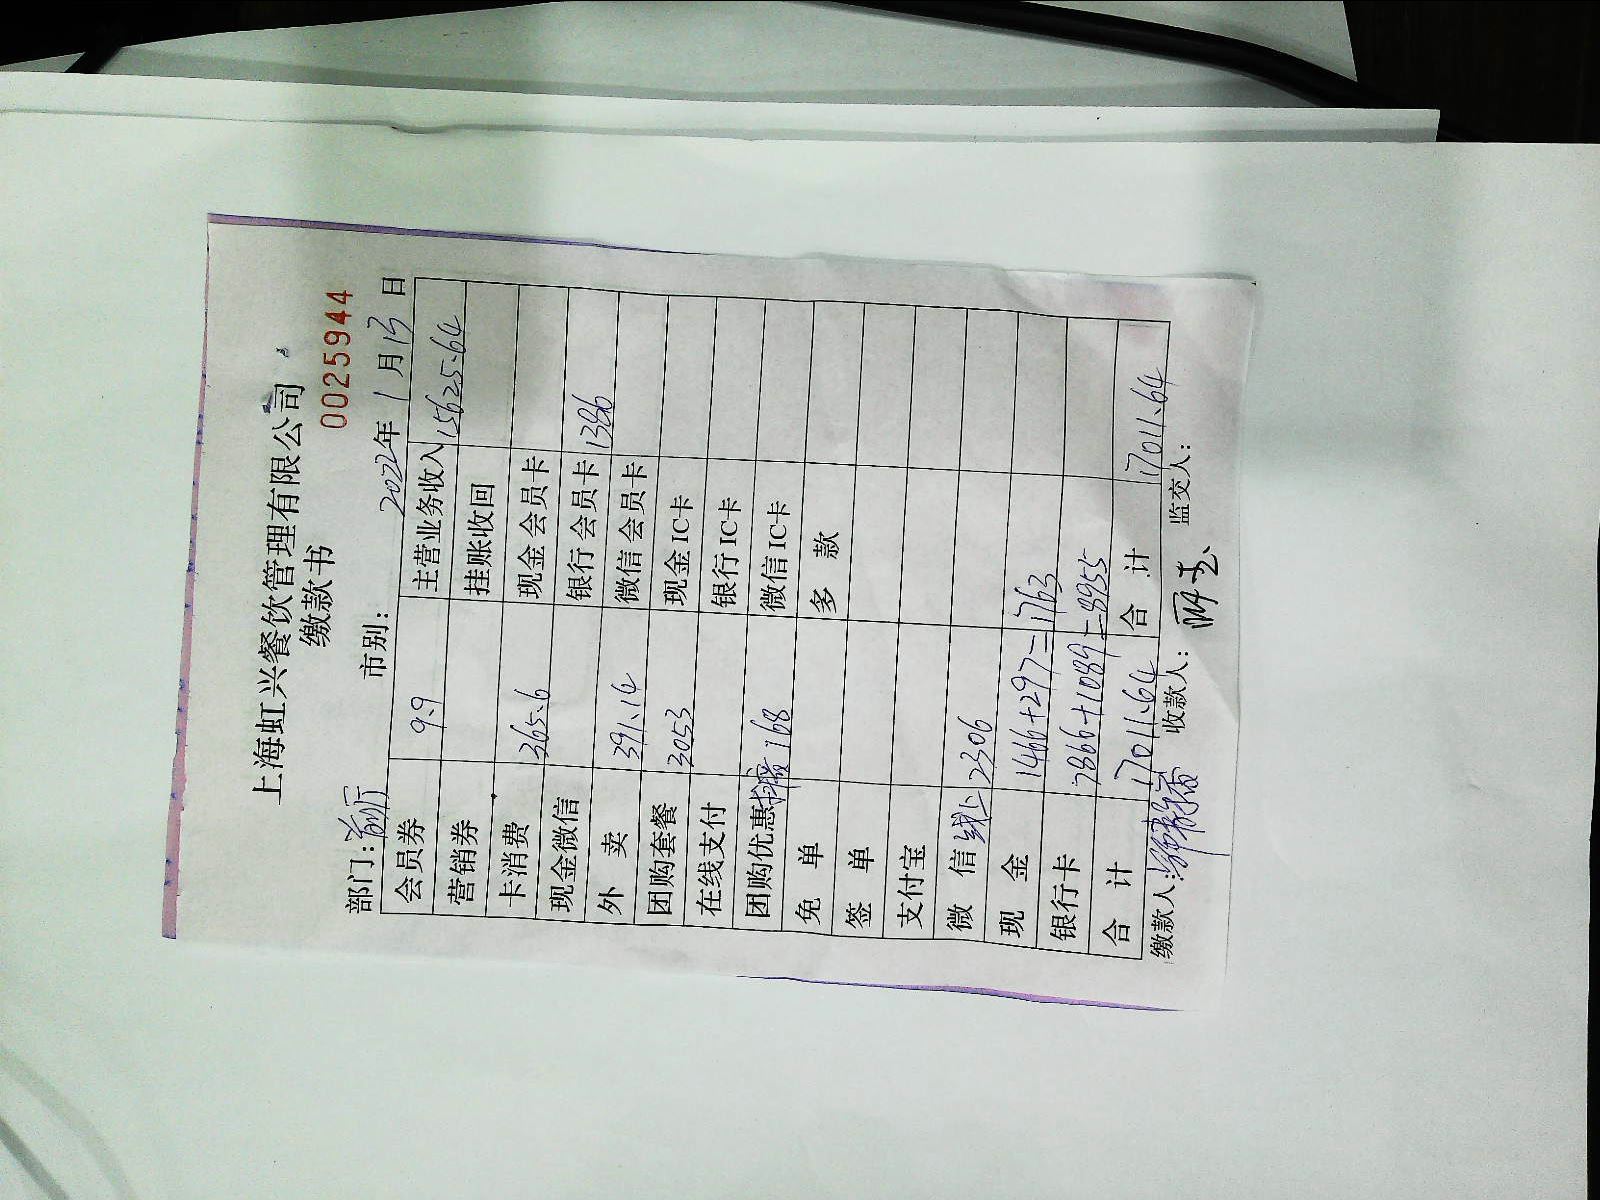 上海虹兴餐饮管理有限公司
缴款书
0025944
部门:前厅 市别: 2022年 1月13日
会员券 9.9 主营业务收入 15625.64
营销券 挂账收回
卡消费 365.6 现金会员卡
现金微信 银行会员卡 1386
外 卖 391.14 微信会员卡
团购套餐 3053 现金IC卡
在线支付 银行IC卡
团购优惠 抖音168 微信IC卡
免 单 多 款
签 单
支付宝
微 信 线上 2306
现 金 1466+297=1763
银行卡 7866+1089=8955
合 计 17011.64 合 计 17011.64
缴款人: 收款人: 监交人: